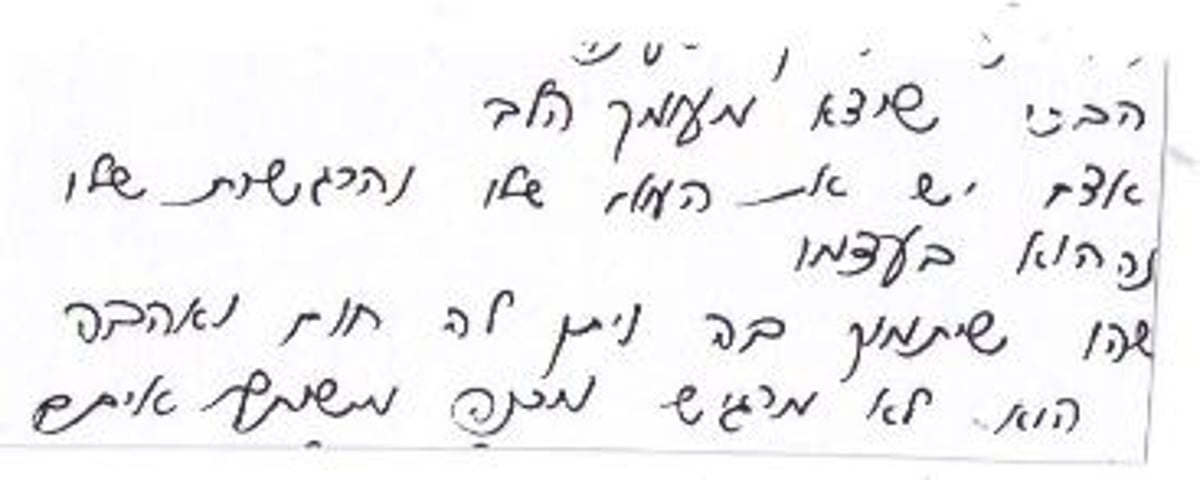 הבכי שיצא מעומק הלב
אדם יש את המוח שלו והרגשות שלו
זה הוא בעצמו
שהו שיתמוך בה ויתן לה חום ואהבה
הוא לא מרגיש משתף איתם